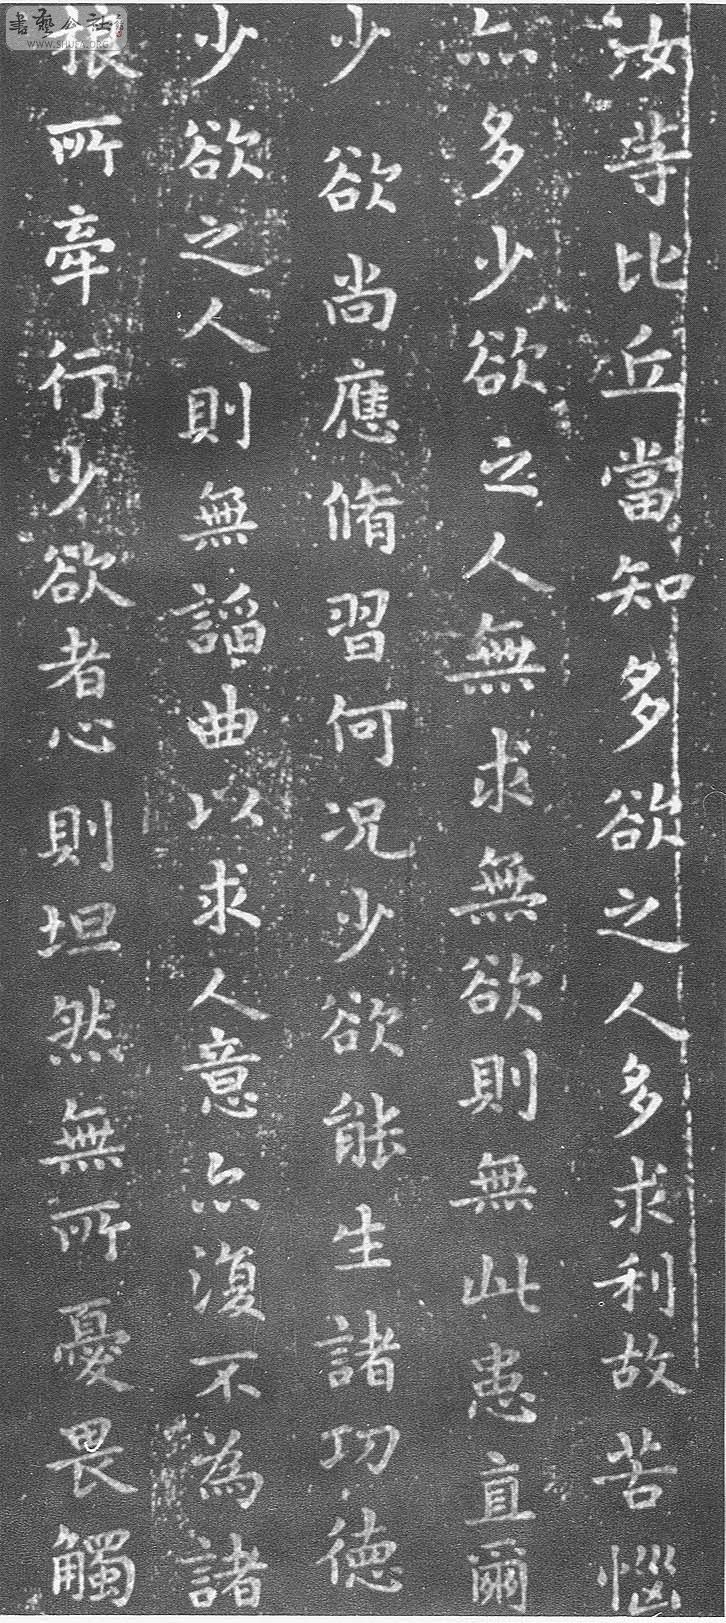 汝等比丘當知多欲之人多求利故苦惱
亦多少欲之人無求無欲則無此患直爾
少欲尚應脩習何況少欲能生諸功德
少欲之人則無謟曲以求人意亦復不為諸
根所牽行少欲者心則坦然無所憂畏觸
書藝公社
WWW.SHUFA.ORG